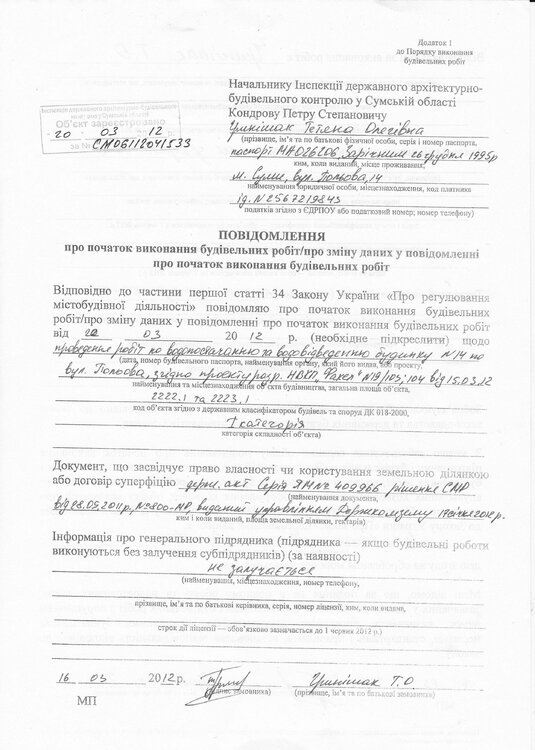 Додаток 1
до Порядку виконання
будівельних робіт
Начальнику Інспекції державного архітектурно-
будівельного контролю у Сумській області
Кондрову Петру Степановичу
Інспекція державного архітектурно-будівельного
контролю у Сумській області
Об'єкт зареєстровано
20 03 12 р.
за № СМ06112041533
Гринішак Тетяна Олегівна
(прізвище, ім'я та по батькові фізичної особи, серія і номер паспорта,
паспорт МА026206 Зарічним 26 грудня 1995р
ким, коли виданий, місце проживання,
м. Суми, вул. Польова, 14
найменування юридичної особи, місцезнаходження, код платника
ід. N 2567219843
податків згідно з ЄДРПОУ або податковий номер; номер телефону)
ПОВІДОМЛЕННЯ
про початок виконання будівельних робіт/про зміну даних у повідомленні
про початок виконання будівельних робіт
Відповідно до частини першої статті 34 Закону України «Про регулювання
містобудівної діяльності» повідомляю про початок виконання будівельних
робіт/про зміну даних у повідомленні про початок виконання будівельних робіт
від 03 2012 р. (необхідне підкреслити) щодо
проведення робіт по водопостачанню та водовідведенню будинку №14 по
(дата, номер будівельного паспорта, найменування органу, який його видав, або проекту,
вул. Польова, згідно проекту розр. НВКП „Факел" №19/105; 104 від 15.03.12
найменування та місцезнаходження об'єкта будівництва, загальна площа об'єкта,
2222.1 та 2223.1
код об'єкта згідно з державним класифікатором будівель та споруд ДК 018-2000,
I категорія
категорія складності об'єкта)
Документ, що засвідчує право власності чи користування земельною ділянкою
або договір суперфіцію держ. акт Серія ЯМ № 409966 рішення СМР
(найменування документа,
від 28.09.2011р, №800-МР, виданий управлінням Держкомзему 17 січня 2012 р.
ким і коли виданий, площа земельної ділянки, гектарів)
Інформація про генерального підрядника (підрядника — якщо будівельні роботи
виконуються без залучення субпідрядників) (за наявності)
не залучається
(найменування, місцезнаходження, номер телефону,
прізвище, ім'я та по батькові керівника, серія, номер ліцензії, ким, коли видана,
строк дії ліцензії — обов'язково зазначається до 1 червня 2012 р.)
16 03 2012 р. Гринішак Т.О
(підпис замовника) (прізвище, ім'я та по батькові замовника)
МП